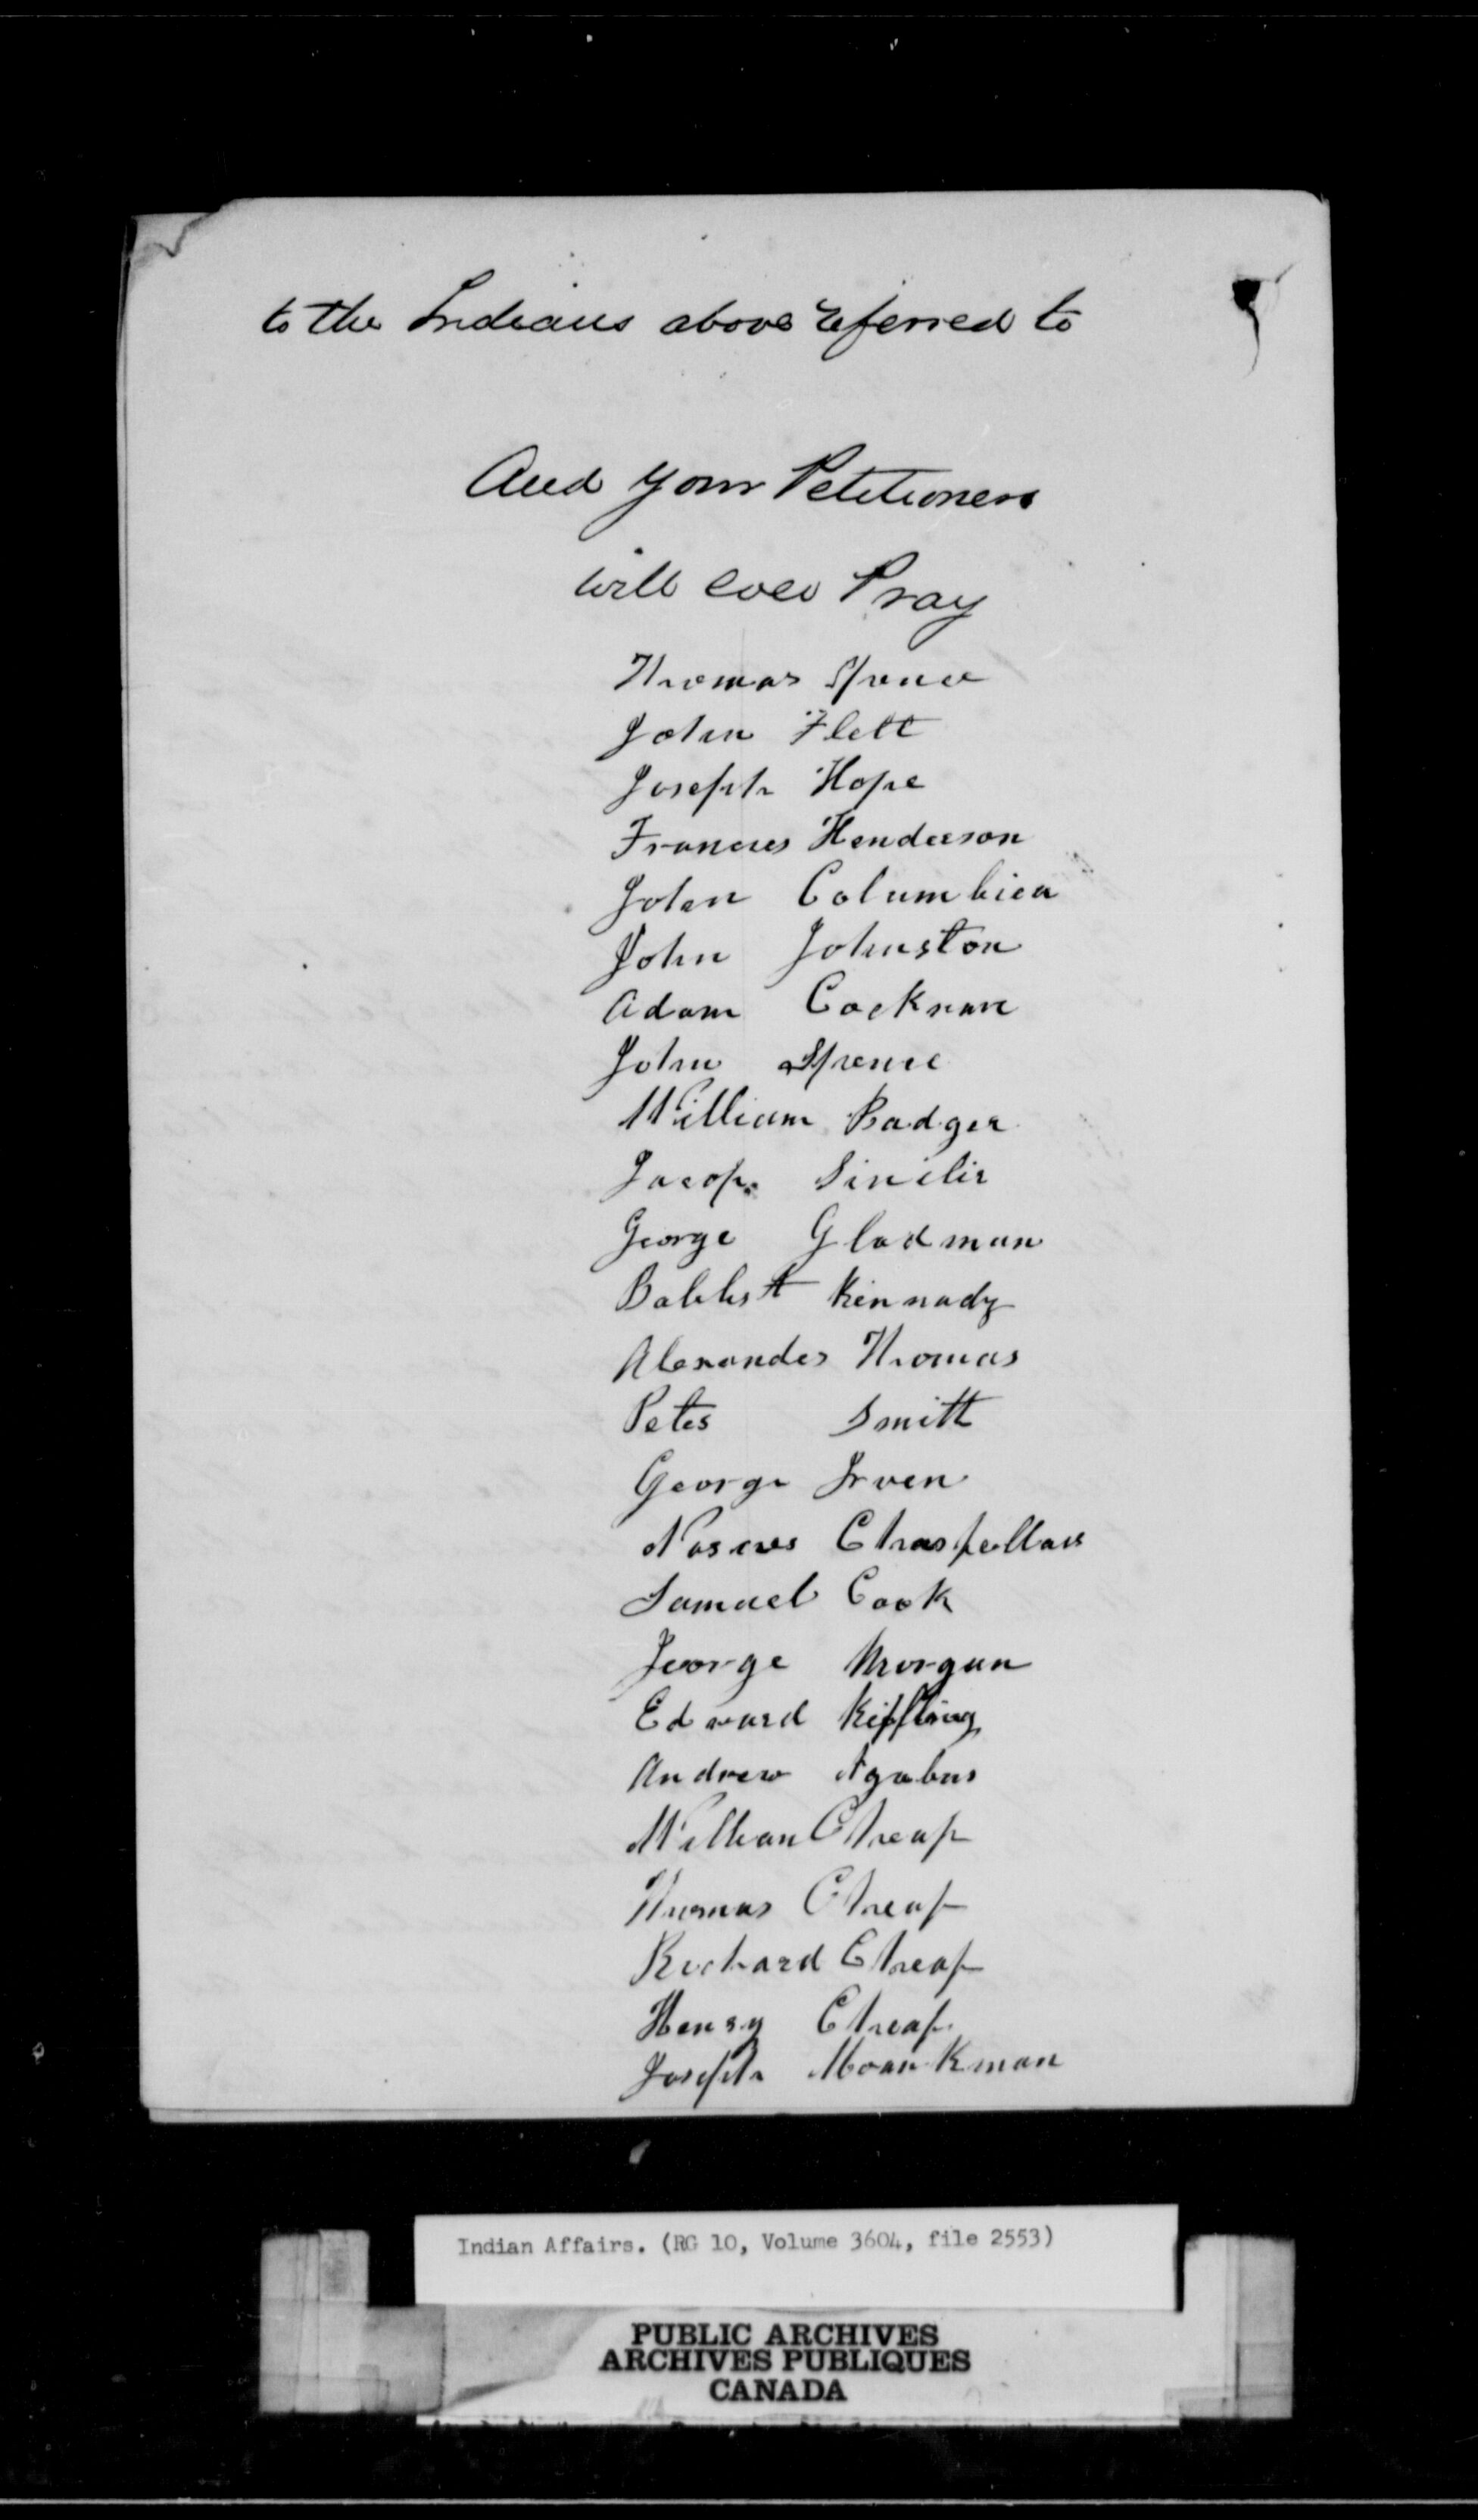 to the Indians above referred to
And your Petitioners
will ever Pray
Thomas Spence
John Flett
Joseph Hope
Francies Henderson
John Columbien
John Johnston
Adam Cocknave
John Spence
William Badger
Jacop Sincler
George Gladman
Kennady
Alexander Thomas
Peter Smith
George Irven
Samuel Cook
George Morgan
Edward Kippling
Andrew Agabus
William Cheap
Thomas Cheap
Richard Cheap
Henry Cheap
Joseph Moankman
Indian Affairs. (RG 10, Volume 3604, file 2553)
PUBLIC ARCHIVES
ARCHIVES PUBLIQUES
CANADA